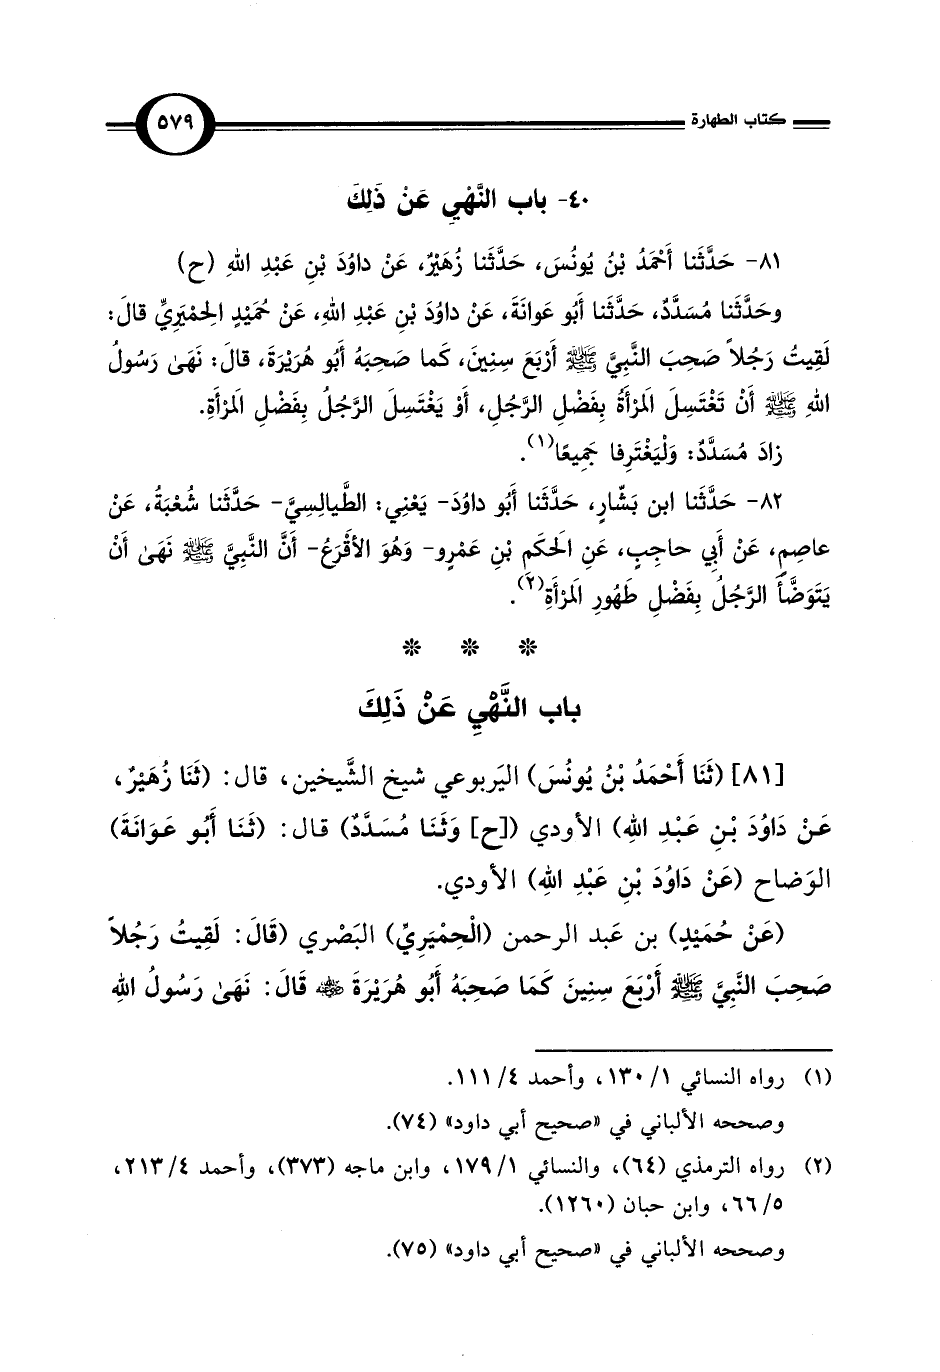 كتاب الطهارة ٥٧٩
٤٠- باب النَّهْيِ عَنْ ذَلِكَ
٨١- حَدَّثَنا أَحْمَدُ بْنُ يُونُسَ، حَدَّثَنا زُهَيْرٌ، عَنْ داوُدَ بْنِ عَبْدِ اللهِ (ح)
وحَدَّثَنا مُسَدَّدٌ، حَدَّثَنا أَبُو عَوانَةَ، عَنْ داوُدَ بْنِ عَبْدِ اللهِ، عَنْ حُمَيْدٍ الحِمْيَرِيِّ قالَ:
لَقِيتُ رَجُلاً صَحِبَ النَّبِيَّ ﷺ أَرْبَعَ سِنِينَ، كَما صَحِبَهُ أَبُو هُرَيْرَةَ، قالَ: نَهَىٰ رَسُولُ
اللهِ ﷺ أَنْ تَغْتَسِلَ المَرْأَةُ بِفَضْلِ الرَّجُلِ، أَوْ يَغْتَسِلَ الرَّجُلُ بِفَضْلِ المَرْأَةِ.
زادَ مُسَدَّدٌ: وَلْيَغْتَرِفا جَمِيعًا(١).
٨٢- حَدَّثَنا ابن بَشَّارٍ، حَدَّثَنا أَبُو داوُدَ- يَعْنِي: الطَّيالِسِيَّ- حَدَّثَنا شُعْبَةُ، عَنْ
عاصِمٍ، عَنْ أَبِي حاجِبٍ، عَنِ الحَكَمِ بْنِ عَمْرٍو- وَهُوَ الأَقْرَعُ- أَنَّ النَّبِيَّ ﷺ نَهَىٰ أَنْ
يَتَوَضَّأَ الرَّجُلُ بِفَضْلِ طَهُورِ المَرْأَةِ(٢).
* * *
باب النَّهْيِ عَنْ ذَلِكَ
[٨١] (ثَنَا أَحْمَدُ بْنُ يُونُسَ) اليَربوعي شيخ الشَّيخين، قال: (ثَنَا زُهَيْرٌ،
عَنْ دَاوُدَ بْنِ عَبْدِ اللهِ) الأودي ([ح] وَثَنَا مُسَدَّدٌ) قال: (ثَنَا أَبُو عَوَانَةَ)
الوَضاح (عَنْ دَاوُدَ بْنِ عَبْدِ اللهِ) الأودي.
(عَنْ حُمَيْدٍ) بن عَبد الرحمن (الْحِمْيَرِيِّ) البَصْري (قَالَ: لَقِيتُ رَجُلاً
صَحِبَ النَّبِيَّ ﷺ أَرْبَعَ سِنِينَ كَمَا صَحِبَهُ أَبُو هُرَيْرَةَ رضي الله عنه قَالَ: نَهَىٰ رَسُولُ اللهِ
(١) رواه النسائي ١/ ١٣٠، وأحمد ٤/ ١١١.
وصححه الألباني في «صحيح أبي داود» (٧٤).
(٢) رواه الترمذي (٦٤)، والنسائي ١/ ١٧٩، وابن ماجه (٣٧٣)، وأحمد ٤/ ٢١٣،
٥/ ٦٦، وابن حبان (١٢٦٠).
وصححه الألباني في «صحيح أبي داود» (٧٥).